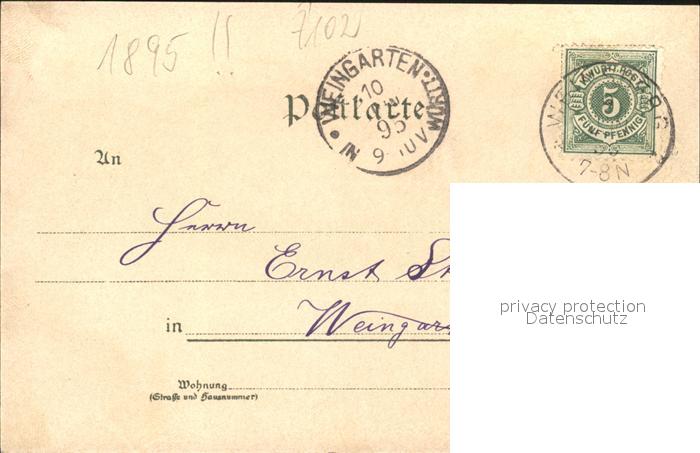 1895 !!
7102
WEINGARTEN WÜRTT.
10
95
9-10 V
Postkarte
K. WÜRTT. POST
5
FÜNF PFENNIG
7-8 N
An
Herrn
Ernst
in Weingar
Wohnung
(Straße und Hausnummer)
privacy protection
Datenschutz